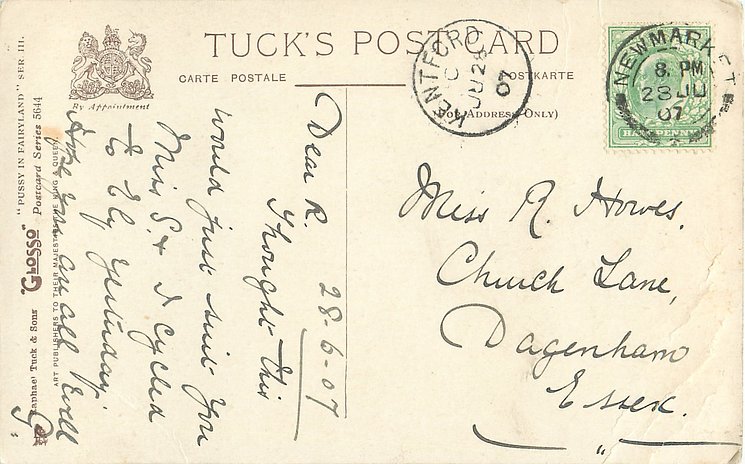 TUCK'S POST CARD
CARTE POSTALE
POSTKARTE
(For Address Only)
By Appointment
"PUSSY IN FAIRYLAND" SER. III.
"GLOSSO" Postcard Series 5644
Raphael Tuck & Sons
ART PUBLISHERS TO THEIR MAJESTIES THE KING & QUEEN
KENTFORD
C
JU 28
07
NEWMARKET
8. PM
28 JU
07
HALFPENNY
28-6-07
Dear R.
Thought this
would just suit you
Miss S. & I cycled
to Ely yesterday.
Hope you are all well
G.
Miss R. Howes,
Church Lane,
Dagenham
Essex.